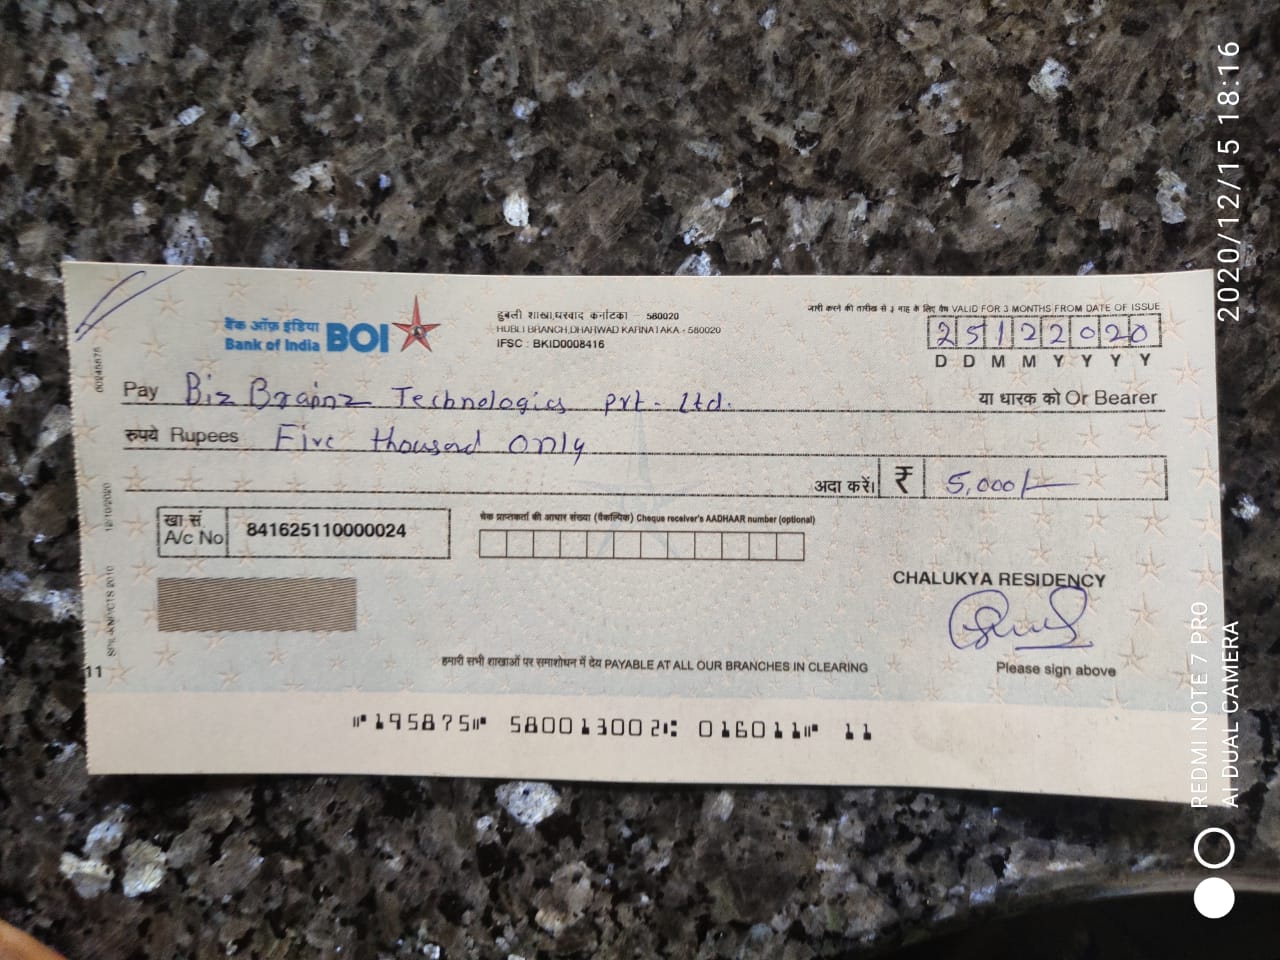 बैंक ऑफ़ इंडिया
Bank of India BOI
हुबली शाखा,धरवाद कर्नाटका - 580020
HUBLI BRANCH,DHARWAD KARNATAKA - 580020
IFSC : BKID0008416
जारी करने की तारीख से ३ माह के लिए वैध VALID FOR 3 MONTHS FROM DATE OF ISSUE
25122020
D D M M Y Y Y Y
Pay Biz Brainz Technologies pvt. Ltd. या धारक को Or Bearer
रुपये Rupees Five thousand only
अदा करें। ₹ 5,000/-
खा सं
A/c No 841625110000024
चेक प्राप्तकर्ता की आधार संख्या (वैकल्पिक) Cheque receiver's AADHAAR number (optional)
CHALUKYA RESIDENCY
हमारी सभी शाखाओं पर समाशोधन में देय PAYABLE AT ALL OUR BRANCHES IN CLEARING
Please sign above
11
⑈195875⑈ 580013002⑆ 016011⑈ 11
12/10/2020
2020/12/15 18:16
REDMI NOTE 7 PRO
AI DUAL CAMERA